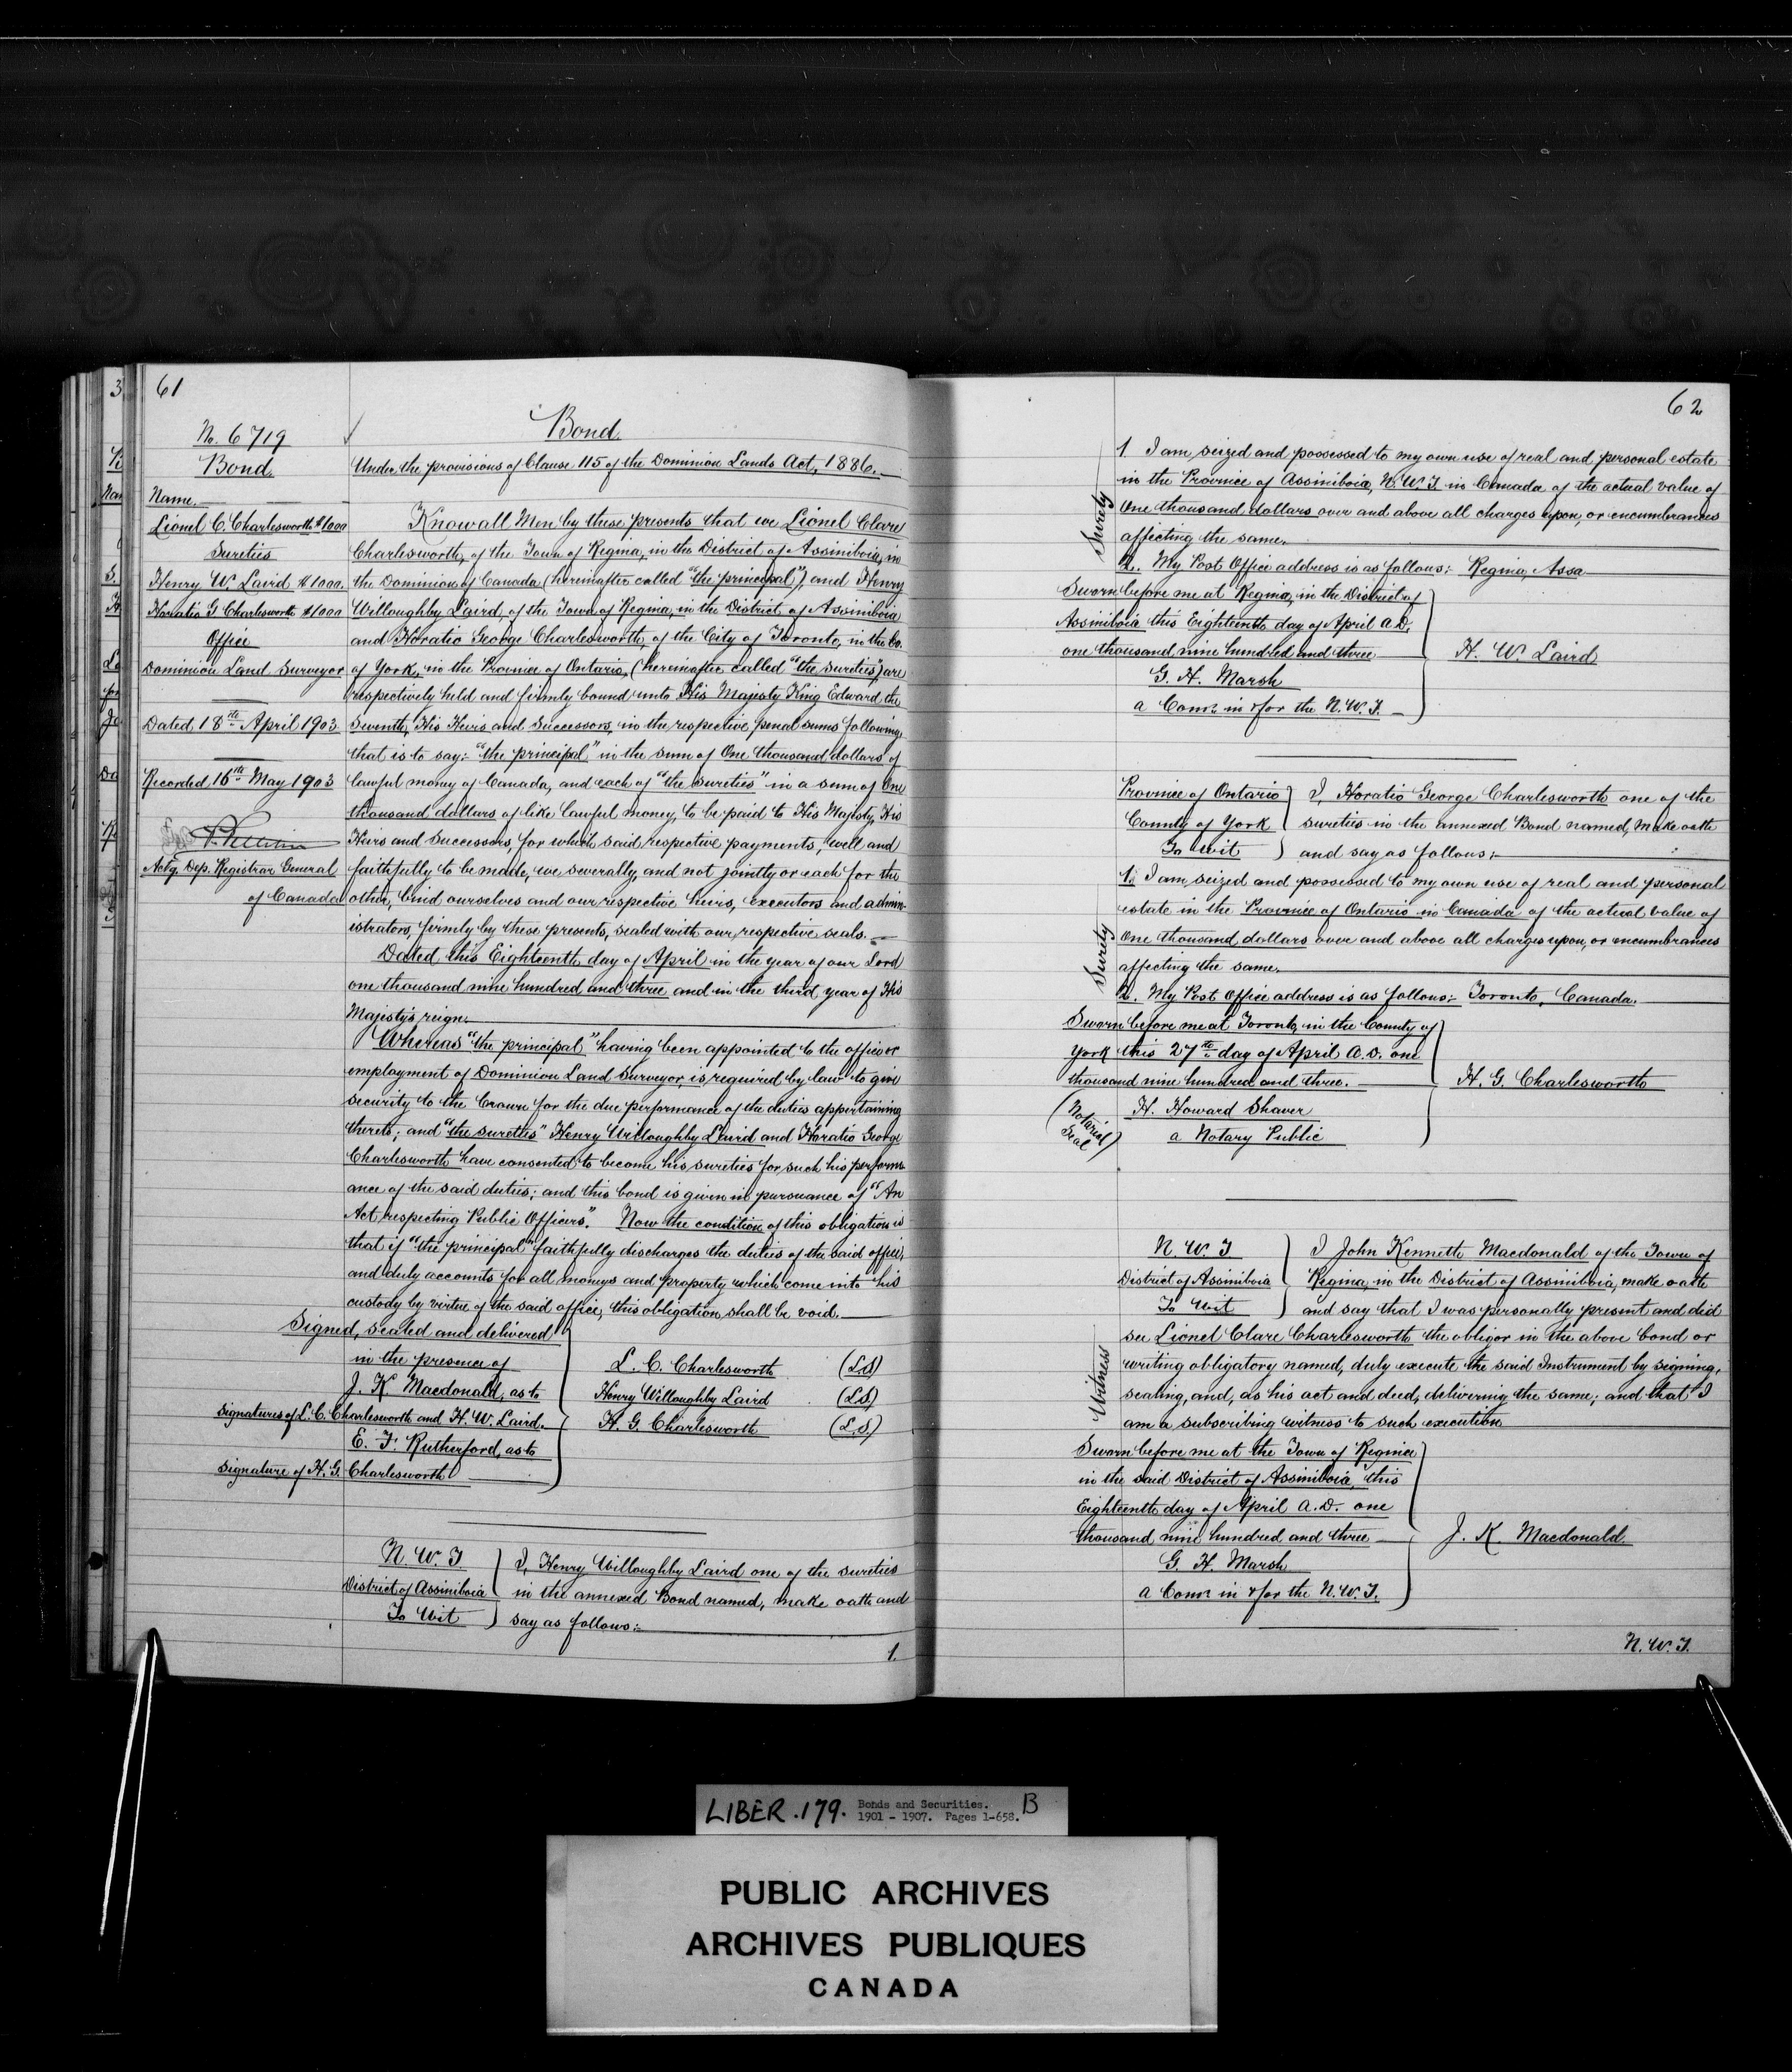 61
No. 6719
Bond
Name.
Lionel C. Charlesworth $1000
Sureties
Henry W. Laird $1000.
Horatio G Charlesworth $1000
Office
Dominion Land Surveyor
Dated 18th April 1903.
Recorded 16th May 1903
Actg. Dep. Registrar General
of Canada
Bond.
Under the provisions of Clause 115 of the Dominion Lands Act, 1886.
Know all Men by these presents that we Lionel Clare
Charlesworth, of the Town of Regina, in the District of Assiniboia, in
the Dominion of Canada (hereinafter called "the principal"), and Henry
Willoughby Laird, of the Town of Regina, in the District of Assiniboia
and Horatio George Charlesworth, of the City of Toronto, in the Co.
of York, in the Province of Ontario, (hereinafter called "the sureties") are
respectively held and firmly bound unto His Majesty King Edward the
Seventh, His Heirs and Successors, in the respective penal sums following,
that is to say:- "the principal" in the sum of One thousand dollars of
lawful money of Canada, and each of "the sureties" in a sum of One
thousand dollars of like lawful money, to be paid to His Majesty, His
Heirs and Successors, for which said respective payments, well and
faithfully to be made, we severally, and not jointly or each for the
other, bind ourselves and our respective heirs, executors and admin-
istrators, firmly by these presents, sealed with our respective seals.
Dated this Eighteenth day of April in the year of our Lord
one thousand nine hundred and three and in the third year of His
Majesty's reign.
Whereas "the principal" having been appointed to the office or
employment of Dominion Land Surveyor, is required by law to give
security to the Crown for the due performance of the duties appertaining
thereto; and "the suretties" Henry Willoughby Laird and Horatio George
Charlesworth have consented to become his sureties for such his perform-
ance of the said duties; and this bond is given in pursuance of "An
Act respecting Public Officers". Now the condition of this obligation is
that if "the principal" faithfully discharges the duties of the said office,
and duly accounts for all moneys and property which come into his
custody by virtue of the said office, this obligation shall be void.
Signed, sealed and delivered
in the presence of
J. K Macdonald, as to
signatures of L. C. Charlesworth and H. W. Laird.
E. F. Rutherford, as to
signature of H. G. Charlesworth
L. C. Charlesworth (L.S)
Henry Willoughby Laird (L.S)
H. G. Charlesworth (L.S)
N. W. T
District of Assiniboia
To Wit
I, Henry Willoughby Laird one of the sureties
in the annexed Bond named, make oath and
say as follows:-
1.
62
Surety
1. I am seized and possessed to my own use of real and personal estate
in the Province of Assiniboia, N.W.T. in Canada of the actual value of
One thousand dollars over and above all charges upon, or encumbrances
affecting the same.
2. My Post Office address is as follows: Regina, Assa
Sworn before me at Regina, in the District of
Assiniboia this Eighteenth day of April A.D.
one thousand nine hundred and three
G. H. Marsh
a Comr in & for the N.W.T.
H. W. Laird
Province of Ontario
County of York
To Wit
I, Horatio George Charlesworth one of the
sureties in the annexed Bond named, make oath
and say as follows:-
Surety
1. I am seized and possessed to my own use of real and personal
estate in the Province of Ontario in Canada of the actual value of
One thousand dollars over and above all charges upon, or encumbrances
affecting the same.
2. My Post Office address is as follows:- Toronto, Canada.
Sworn before me at Toronto, in the County of
York this 27th day of April A.D. one
thousand nine hundred and three.
H. Howard Shaver
a Notary Public
(Notarial
Seal)
H. G. Charlesworth
N. W. T
District of Assiniboia
To Wit
I John Kenneth Macdonald of the Town of
Regina, in the District of Assiniboia, make oath
and say that I was personally present and did
see Lionel Clare Charlesworth the obligor in the above bond or
writing obligatory named, duly execute the said Instrument by signing,
sealing, and, as his act and deed, delivering the same; and that I
am a subscribing witness to such execution
Witness
Sworn before me at the Town of Regina
in the said District of Assiniboia, this
Eighteenth day of April A.D. one
thousand nine hundred and three
G. H. Marsh
a Comr in & for the N.W.T.
J. K. Macdonald.
N.W.T.
LIBER .179. Bonds and Securities. B
1901 - 1907. Pages 1-658.
PUBLIC ARCHIVES
ARCHIVES PUBLIQUES
CANADA